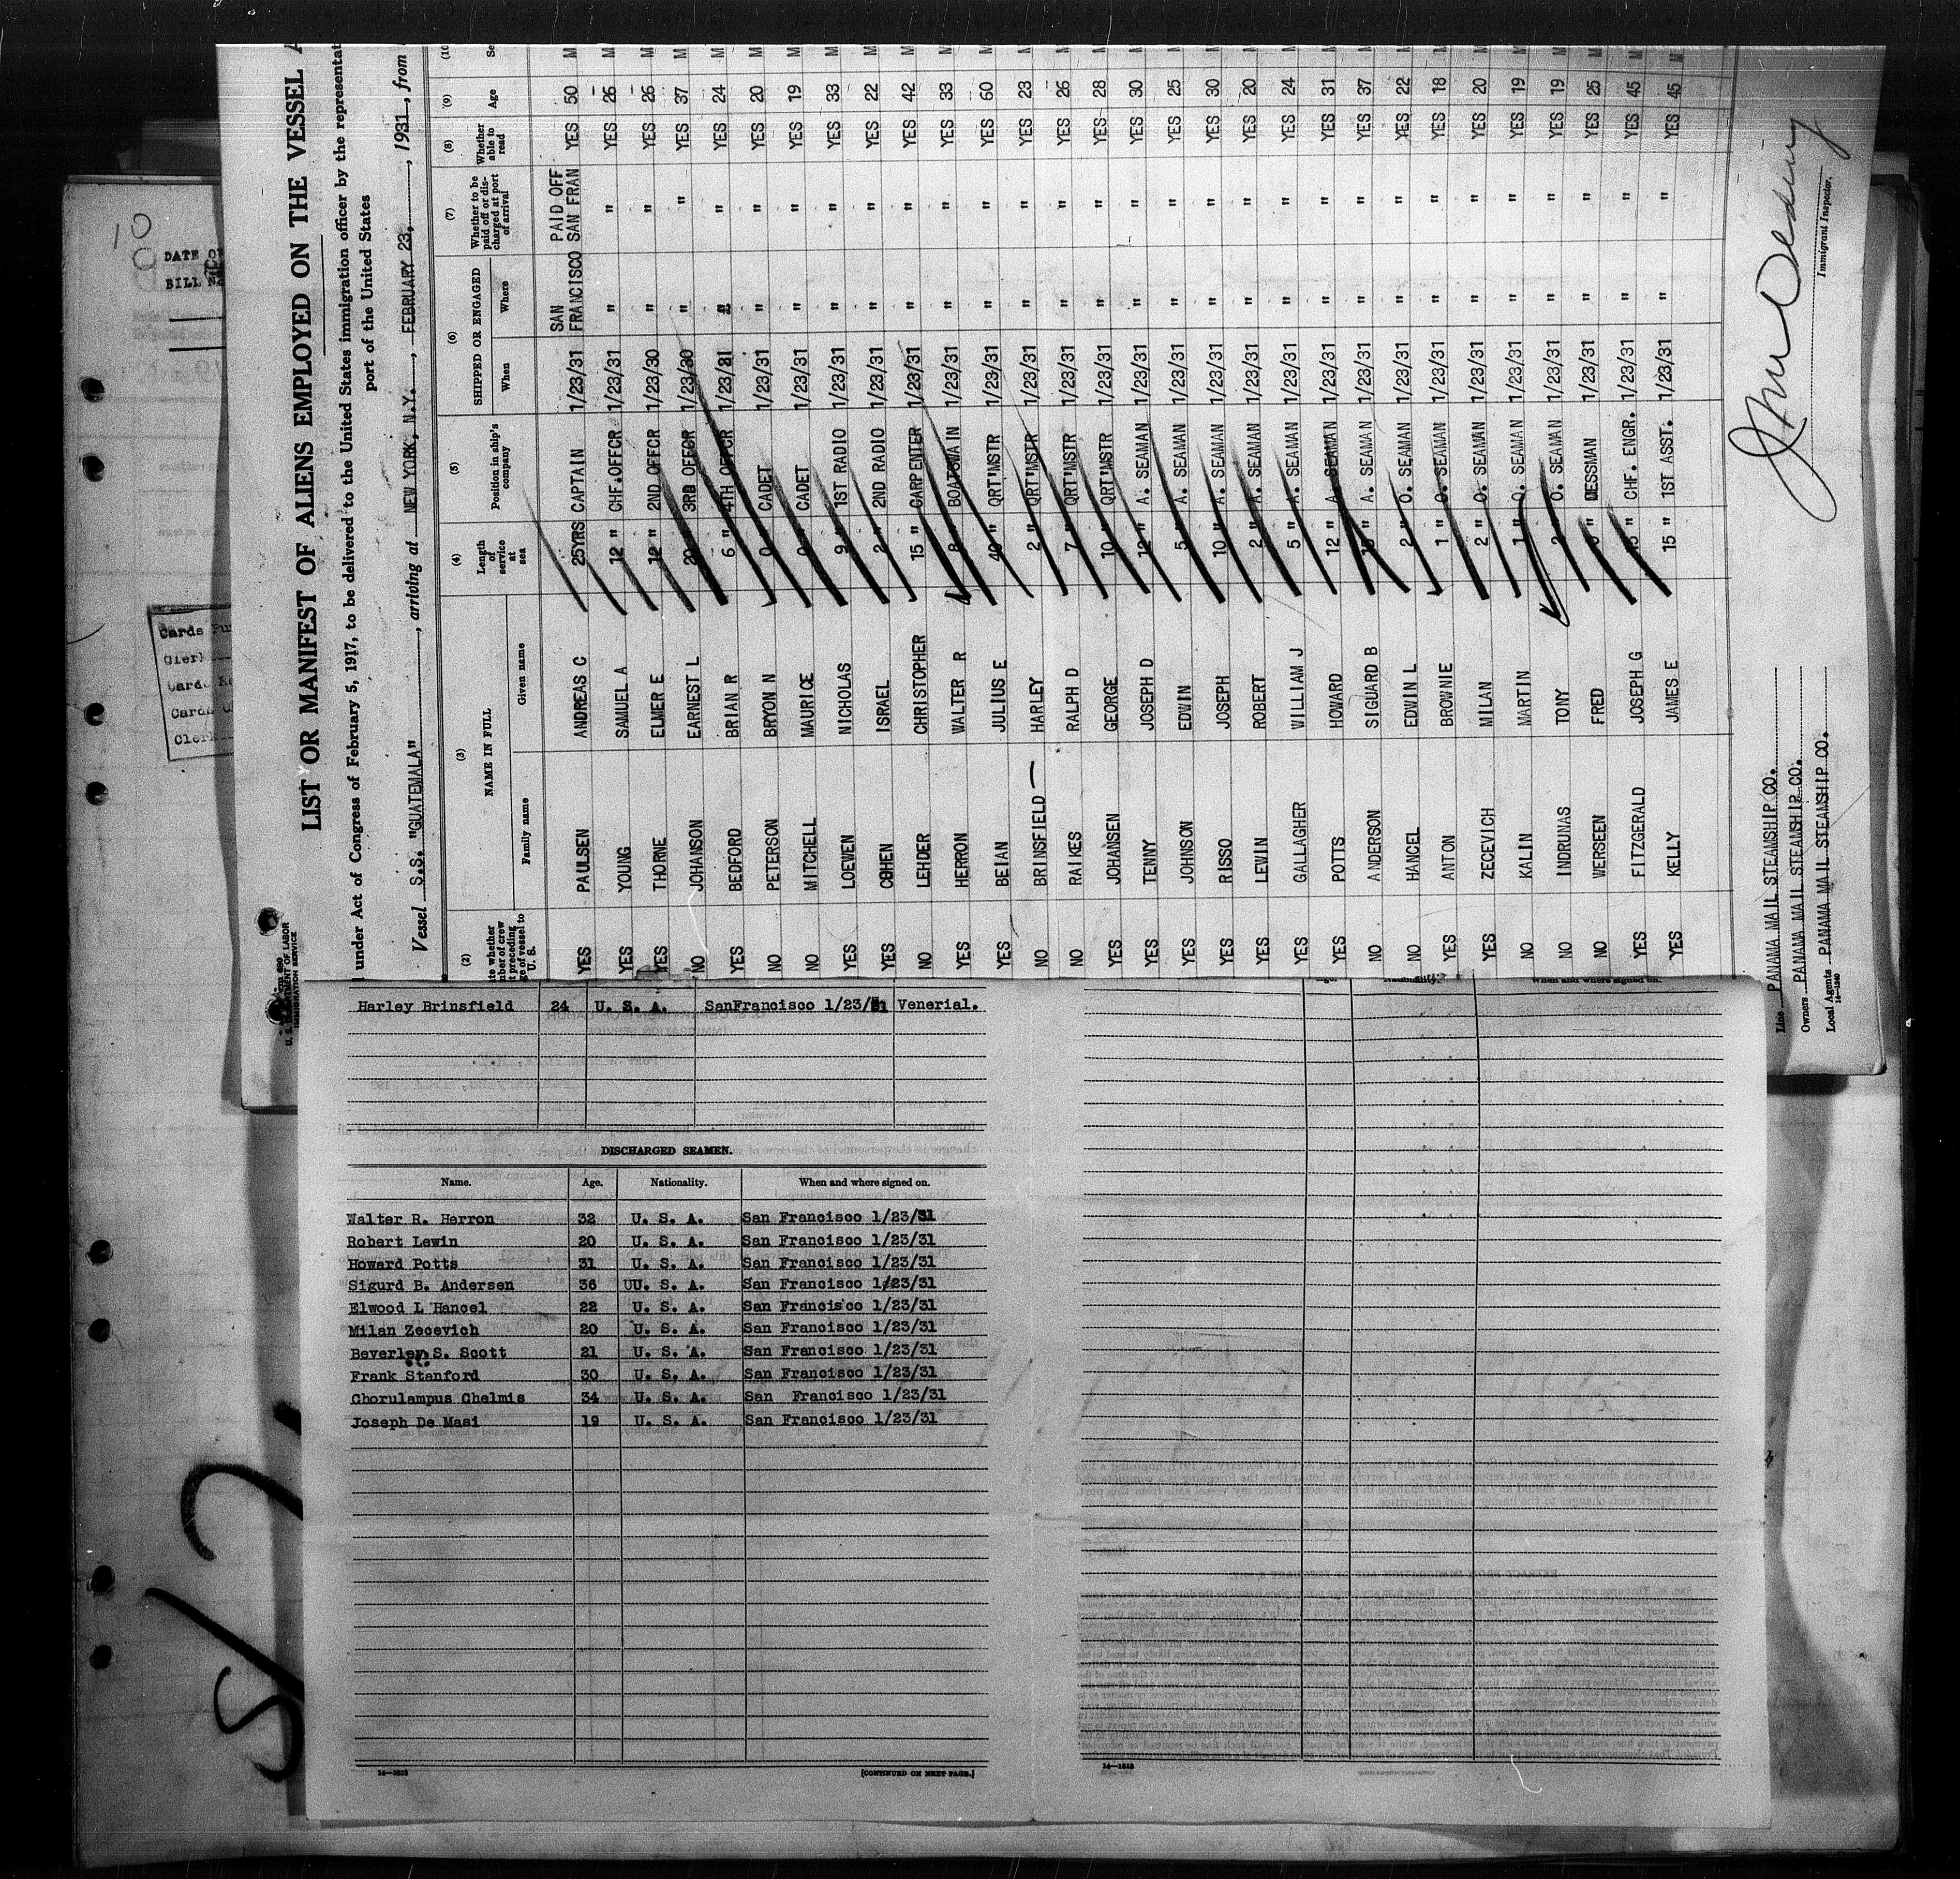 LIST OR MANIFEST OF ALIENS EMPLOYED ON THE VESSEL A
under Act of Congress of February 5, 1917, to be delivered to the United States immigration officer by the representat
port of the United States
Vessel S.S. "GUATEMALA", arriving at NEW YORK, N.Y., FEBRUARY 23, 1931, from
U. S. DEPARTMENT OF LABOR
IMMIGRATION SERVICE
(2) (3) (4) (5) (6) (7) (8) (9) (10
NAME IN FULL
Family name Given name
Length of service at sea
Position in ship's company
SHIPPED OR ENGAGED
When Where
Whether to be paid off or discharged at port of arrival
Whether able to read
Age
Se
YES PAULSEN ANDREAS C 25YRS CAPTAIN 1/23/31 SAN FRANCISCO PAID OFF SAN FRAN YES 50 M
YES YOUNG SAMUEL A 12 " CHF.OFFCR 1/23/31 " " YES 26 M
YES THORNE ELMER E 12 " 2ND OFFCR 1/23/30 " " YES 26 M
NO JOHANSON EARNEST L 20 " 3RD OFFCR 1/23/30 " " YES 37 M
YES BEDFORD BRIAN R 6 " 4TH OFFCR 1/23/31 " " YES 24 M
NO PETERSON BRYON N 0 " CADET 1/23/31 " " YES 20 M
NO MITCHELL MAURICE 0 " CADET 1/23/31 " " YES 19 M
YES LOEWEN NICHOLAS 9 " 1ST RADIO 1/23/31 " " YES 33 M
YES COHEN ISRAEL 2 " 2ND RADIO 1/23/31 " " YES 22 M
NO LEHDER CHRISTOPHER 15 " CARPENTER 1/23/31 " " YES 42 M
YES HERRON WALTER R 8 " BOATSWAIN 1/23/31 " " YES 33 M
YES BEIAN JULIUS E 40 " QRT'MSTR 1/23/31 " " YES 60 M
NO BRINSFIELD — HARLEY 2 " QRT'MSTR 1/23/31 " " YES 23 M
NO RAIKES RALPH D 7 " QRT'MSTR 1/23/31 " " YES 26 M
YES JOHANSEN GEORGE 10 " QRT'MSTR 1/23/31 " " YES 28 M
YES TENNY JOSEPH D 12 " A. SEAMAN 1/23/31 " " YES 30 M
YES JOHNSON EDWIN 5 " A. SEAMAN 1/23/31 " " YES 25 M
YES RISSO JOSEPH 10 " A. SEAMAN 1/23/31 " " YES 30 M
YES LEWIN ROBERT 2 " A. SEAMAN 1/23/31 " " YES 20 M
YES GALLAGHER WILLIAM J 5 " A. SEAMAN 1/23/31 " " YES 24 M
YES POTTS HOWARD 12 " A. SEAMAN 1/23/31 " " YES 31 M
NO ANDERSON SIGUARD B " A. SEAMAN 1/23/31 " " YES 37 M
NO HANCEL EDWIN L 2 " O. SEAMAN 1/23/31 " " YES 22 M
YES ANTON BROWNIE 1 " O. SEAMAN 1/23/31 " " YES 18 M
YES ZECEVICH MILAN 2 " O. SEAMAN 1/23/31 " " YES 20 M
NO KALIN MARTIN 1 " O. SEAMAN 1/23/31 " " YES 19 M
NO INDRUNAS TONY 2 " O. SEAMAN 1/23/31 " " YES 19 M
NO WERSEEN FRED " MESSMAN 1/23/31 " " YES 25 M
YES FITZGERALD JOSEPH G 15 " CHF. ENGR. 1/23/31 " " YES 45 M
YES KELLY JAMES E 15 " 1ST ASST. 1/23/31 " " YES 45 M
Line PANAMA MAIL STEAMSHIP CO.
Owners PANAMA MAIL STEAMSHIP CO.
Local Agents PANAMA MAIL STEAMSHIP CO.
Immigrant Inspector.
10
DATE OF
BILL No
Cards Pu
Clerk
Card Ke
Cards
Clerk
Harley Brinsfield 24 U. S. A. SanFrancisco 1/23/31 Venerial.
DISCHARGED SEAMEN.
Name. Age. Nationality. When and where signed on.
Walter R. Herron 32 U. S. A. San Francisco 1/23/31
Robert Lewin 20 U. S. A. San Francisco 1/23/31
Howard Potts 31 U. S. A. San Francisco 1/23/31
Sigurd B. Andersen 36 UU. S. A. San Francisco 1/23/31
Elwood L Hancel 22 U. S. A. San Francisco 1/23/31
Milan Zecevich 20 U. S. A. San Francisco 1/23/31
Beverley S. Scott 21 U. S. A. San Francisco 1/23/31
Frank Stanford 30 U. S. A. San Francisco 1/23/31
Chorulampus Chelmis 34 U. S. A. San Francisco 1/23/31
Joseph De Masi 19 U. S. A. San Francisco 1/23/31
14—1618 [CONTINUED ON NEXT PAGE.]
14—1618
When and where signed on.